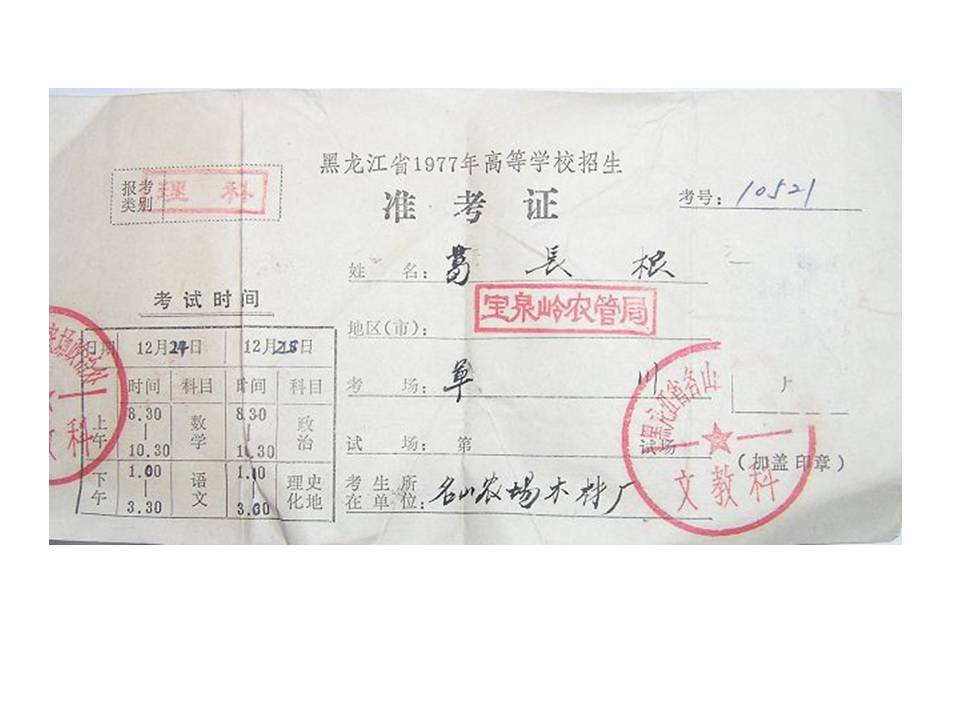 黑龙江省1977年高等学校招生
准考证
报考类别 理科
考号: 10521
姓名: 葛長根
考试时间
地区(市): 宝泉岭农管局
日期 12月24日 12月25日
时间 科目 时间 科目
考场: 川
上午 8.30—10.30 数学 8.30—10.30 政治
试场: 第 试场
下午 1.00—3.30 语文 1.00—3.00 理化 史地
考生所在单位: 名山农场木材厂
(加盖印章)
黑龙江省名山
文教科